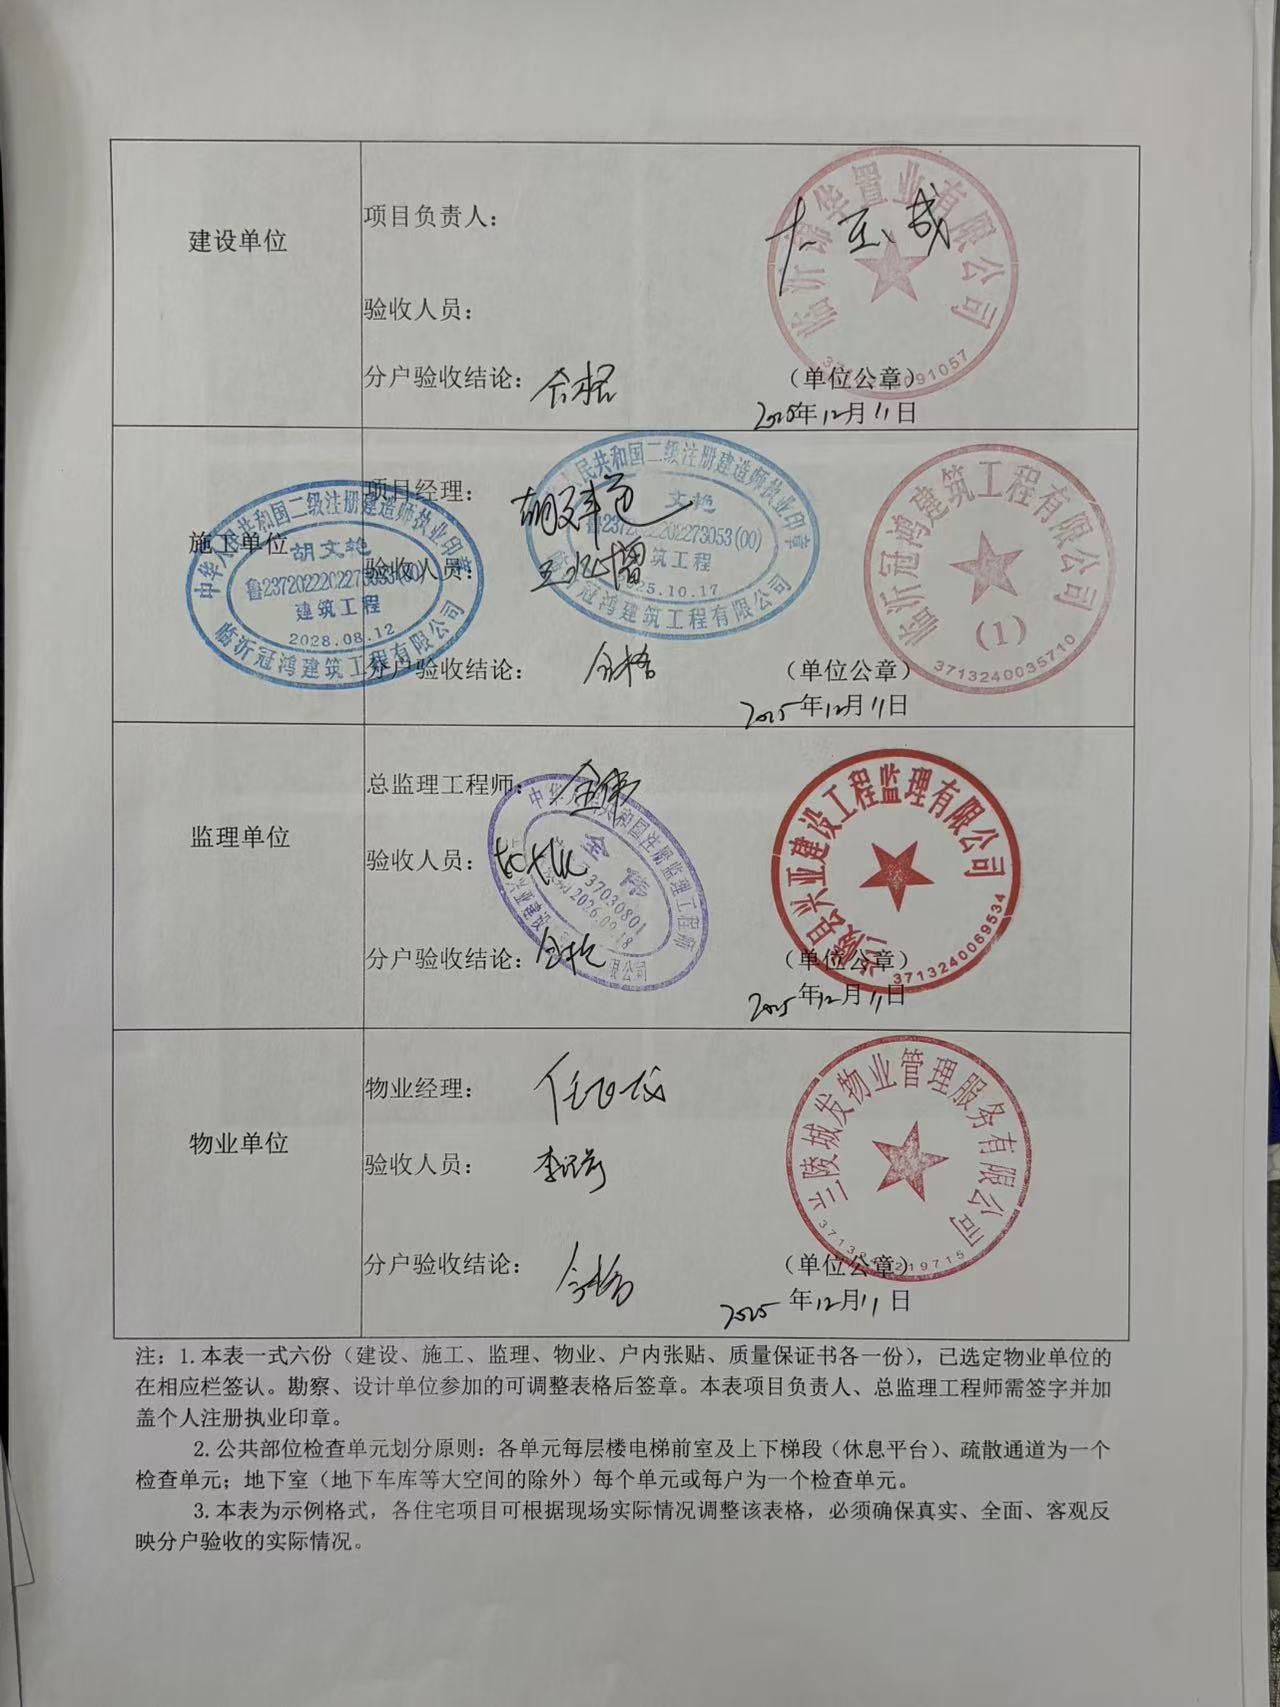 建设单位
项目负责人：
验收人员：
分户验收结论：合格
（单位公章）
2025年12月11日
临沂瑞华置业有限公司
施工单位
项目经理：胡文艳
验收人员：
分户验收结论：合格
（单位公章）
2025年12月11日
中华人民共和国二级注册建造师执业印章
胡文艳
鲁2372022202273053(00)
建筑工程
2028.08.12
临沂冠鸿建筑工程有限公司
人民共和国二级注册建造师执业印章
文艳
鲁2372022202273053(00)
筑工程
2025.10.17
冠鸿建筑工程有限公司
临沂冠鸿建筑工程有限公司
(1)
3713240035710
监理单位
总监理工程师：金伟
验收人员：
分户验收结论：合格
（单位公章）
2025年12月11日
中华人民共和国注册监理工程师
金伟
37030801
2026.09.18
兰陵县兴亚建设工程监理有限公司
3713240069534
物业单位
物业经理：
验收人员：
分户验收结论：合格
（单位公章）
2025年12月11日
兰陵城发物业管理服务有限公司
注：1.本表一式六份（建设、施工、监理、物业、户内张贴、质量保证书各一份），已选定物业单位的
在相应栏签认。勘察、设计单位参加的可调整表格后签章。本表项目负责人、总监理工程师需签字并加
盖个人注册执业印章。
2.公共部位检查单元划分原则：各单元每层楼电梯前室及上下梯段（休息平台）、疏散通道为一个
检查单元；地下室（地下车库等大空间的除外）每个单元或每户为一个检查单元。
3.本表为示例格式，各住宅项目可根据现场实际情况调整该表格，必须确保真实、全面、客观反
映分户验收的实际情况。